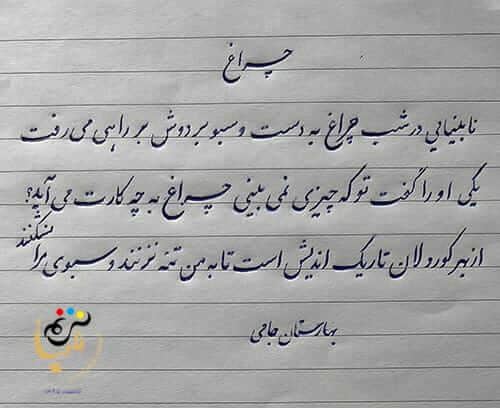 چراغ
نابینایی در شب چراغ به دست و سبو بر دوش بر راهی می رفت
یکی او را گفت تو که چیزی نمی بینی چراغ به چه کارت می آید؟
از بهر کوردلان تاریک اندیش است تا به من تنه نزنند و سبوی مرا نشکنند
بهارستان جامی